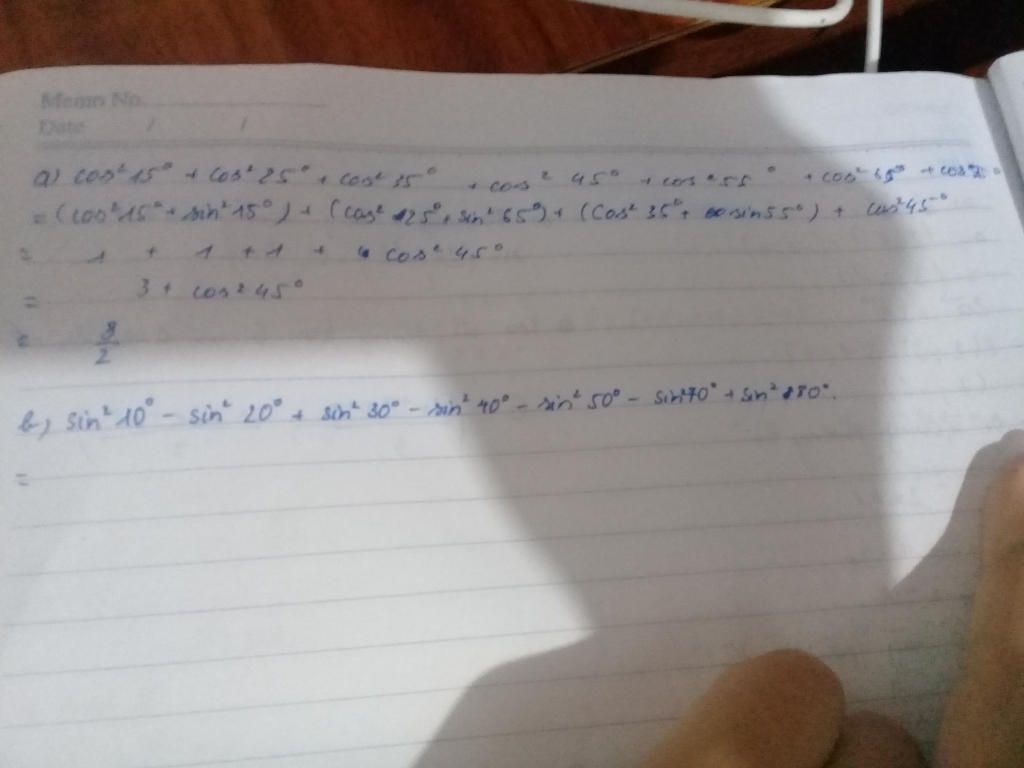 Memo No.
Date / /
a) cos²15° + cos²25° + cos²35° + cos² 45° + cos²55° + cos²65° + cos²75°
= (cos²15° + sin²15°) + (cos²25° + sin²65°) + (cos²35° + sin55°) + cos²45°
= 1 + 1 + 1 + cos²45°
= 3 + cos²45°
= 8/2
b) sin²10° - sin²20° + sin²30° - sin²40° - sin²50° - sin²70° + sin²80°.
=